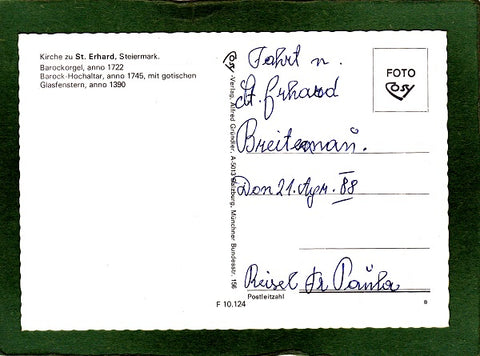 Kirche zu St. Erhard, Steiermark.
Barockorgel, anno 1722
Barock-Hochaltar, anno 1745, mit gotischen
Glasfenstern, anno 1390
Cosy-Verlag, Alfred Gründler, A-5013 Salzburg, Münchner Bundesstr. 156
Fahrt n.
St. Erhard
Breitenau.
Don 21. Apr. 88
FOTO
COSY
Reisel Fr Paula
Postleitzahl
F 10.124